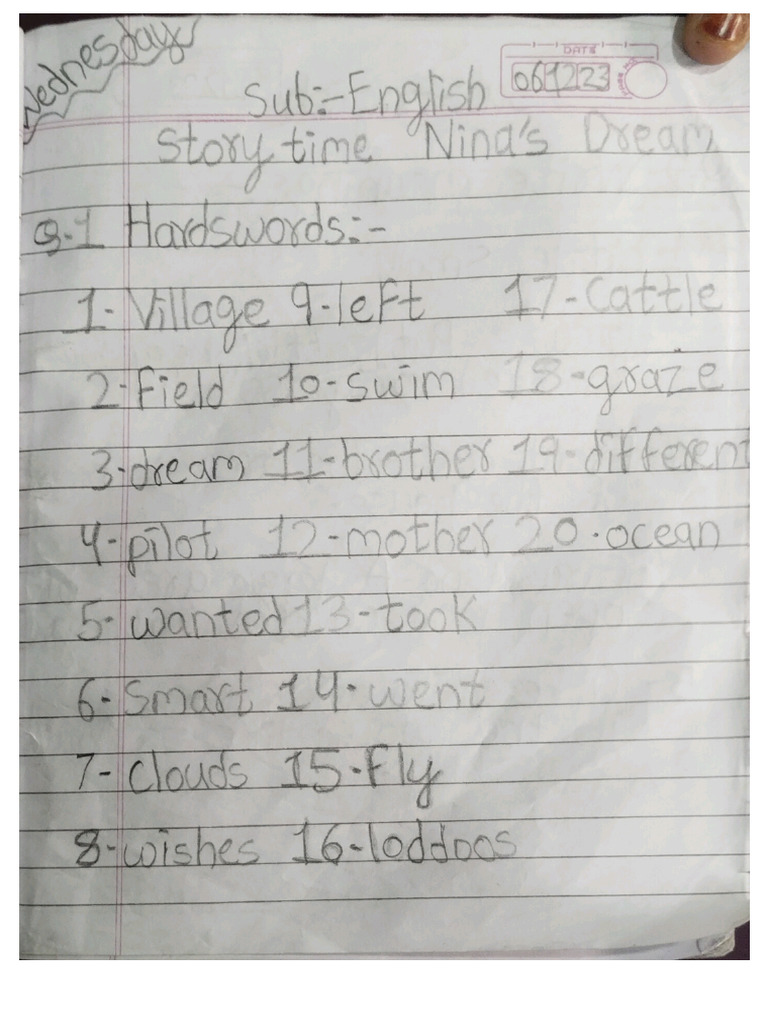 Wednesday
DATE
061223
Sub:-English
Story time Nina's Dream
Q.1 Hardswords:-
1- Village 9-left 17-Cattle
2-Field 10-swim 18-graze
3-dream 11-brother 19-different
4-pilot 12-mother 20.ocean
5-wanted 13-took
6-Smart 14-went
7-Clouds 15.Fly
8-wishes 16-loddoos